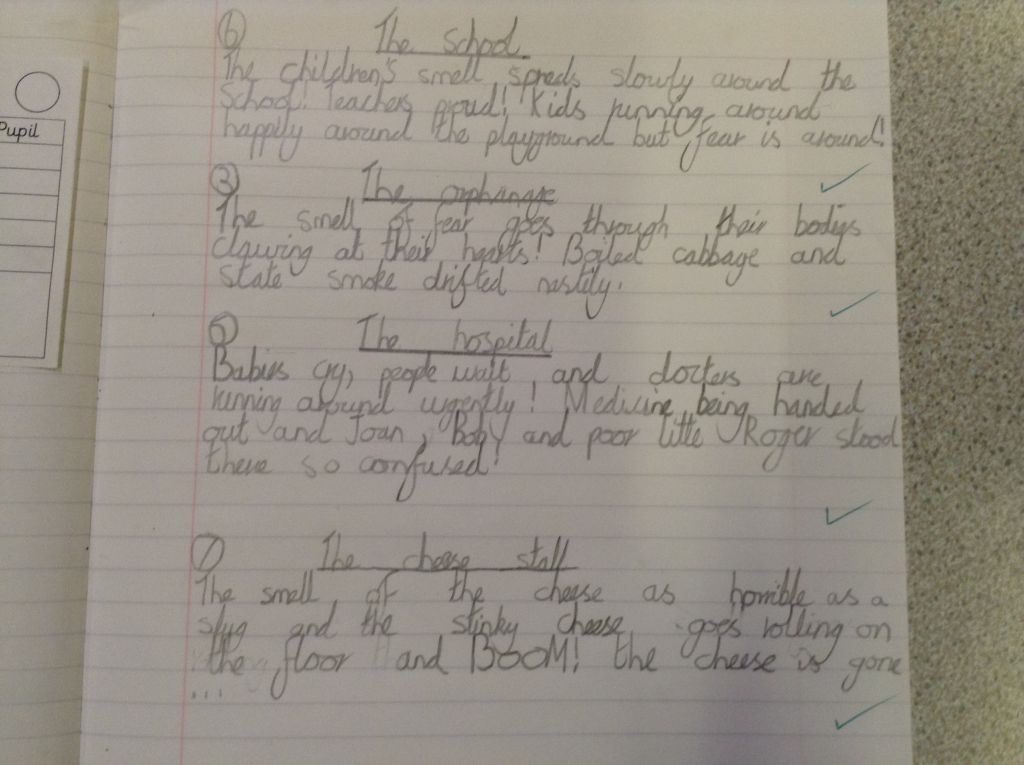 Pupil
6 The school
The children's smell spreds slowly around the
School! Teachers proud! Kids running around
happily around the playground but fear is around!
3 The orphange
The smell of fear goes through their bodys
clawing at their hearts! Boiled cabbage and
stale smoke drifted nastily.
5 The hospital
Babies cry, people wait and docters are
running around urgently! Medicine being handed
out and Joan, Body and poor little Roger stood
there so confused!
7 The cheese stall
The smell of the cheese as horrible as a
slug and the stinky cheese goes rolling on
the floor and BOOM! the cheese is gone
...